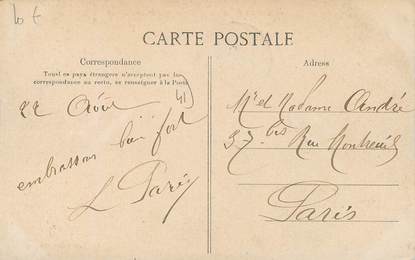 10 €
CARTE POSTALE
Correspondance
Tous les pays étrangers n'acceptent pas la
correspondance au recto, se renseigner à la Poste
22 Août
41
embrassons bien fort
L.
Adresse
Mr et Madame André
37 bis Rue Montreuil
Paris